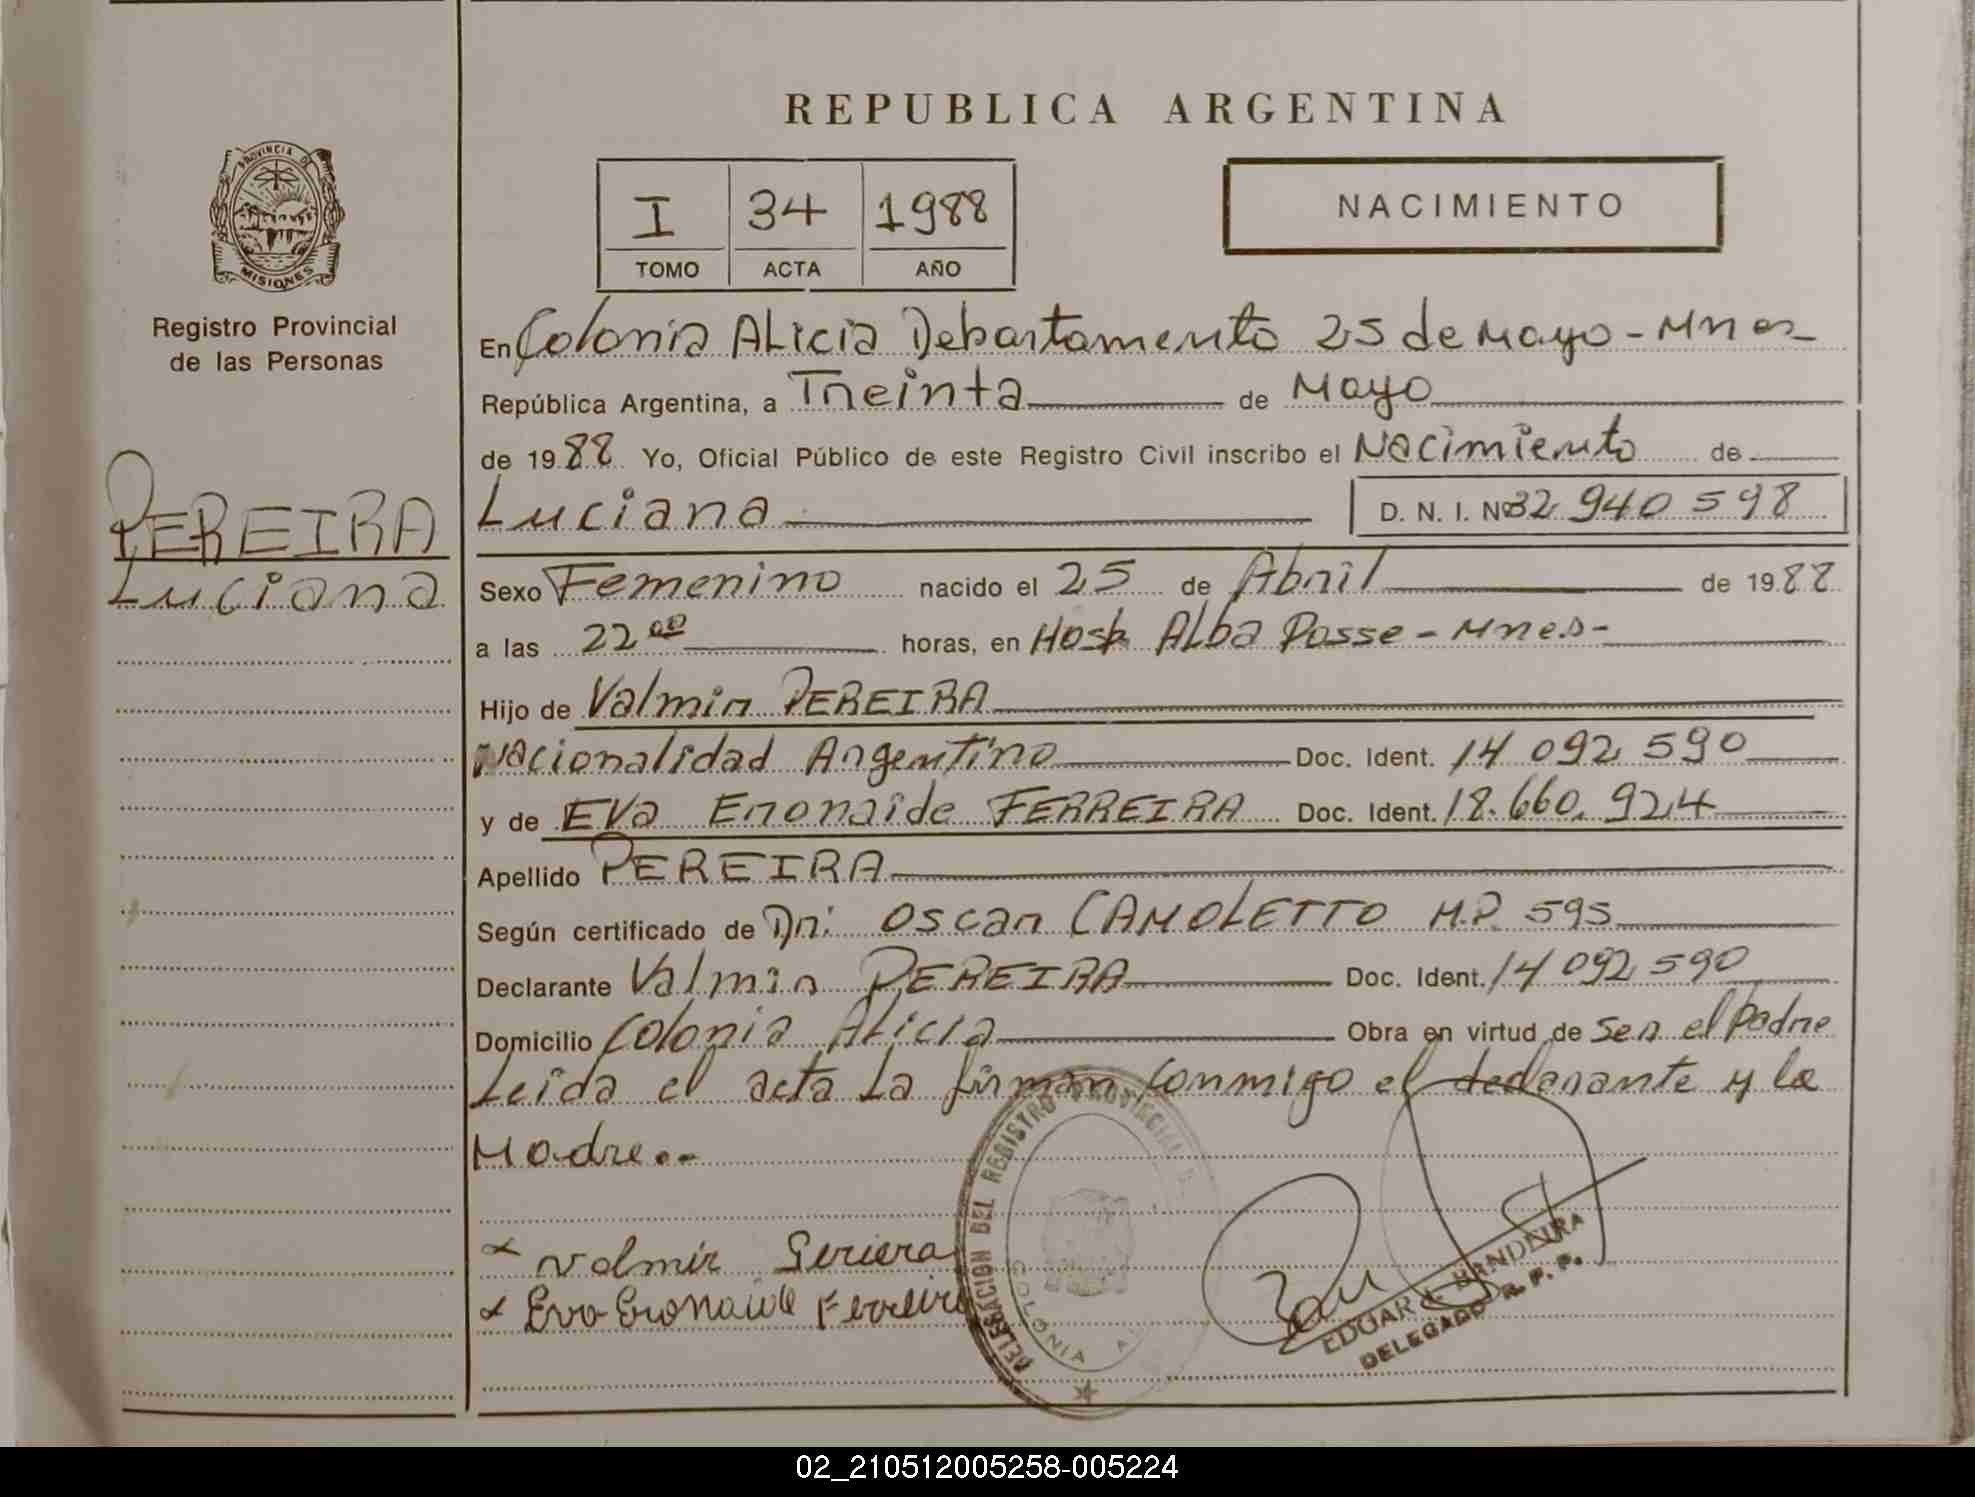 REPUBLICA ARGENTINA
PROVINCIA DE
MISIONES
Registro Provincial
de las Personas
I 34 1988
TOMO ACTA AÑO
NACIMIENTO
PEREIRA
Luciana
En Colonia Alicia Departamento 25 de Mayo - Mnes
República Argentina, a Treinta de Mayo
de 1988 Yo, Oficial Público de este Registro Civil inscribo el Nacimiento de
Luciana D. N. I. Nº 32 940 598
Sexo Femenino nacido el 25 de Abril de 1988
a las 22 00 horas, en Hosp Alba Posse - Mnes -
Hijo de Valmir PEREIRA
Nacionalidad Argentino Doc. Ident. 14 092 590
y de EVa Eronaide FERREIRA Doc. Ident. 18.660.924
Apellido PEREIRA
Según certificado de Dr: Oscar CAMOLETTO M.P. 595
Declarante Valmir PEREIRA Doc. Ident. 14 092 590
Domicilio Colonia Alicia Obra en virtud de Ser el Padre
Leida el acta La firman conmigo el declarante y la
Madre..
DELEGACION DEL REGISTRO PROVINCIAL
COLONIA
x Valmir Periera
x Eva Eronaide Ferreira
EDGAR BANDEIRA
DELEGADO R. P. P.
02_210512005258-005224